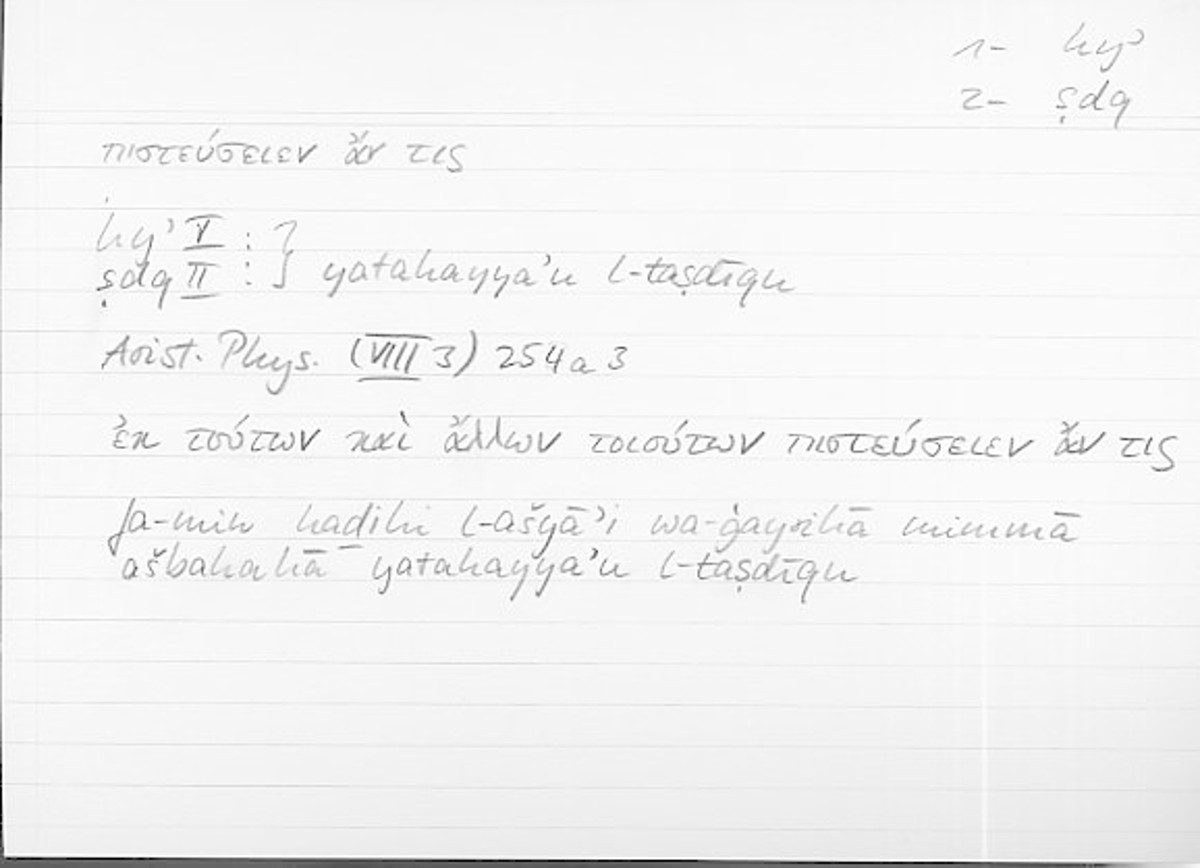 1- hyʾ
2- ṣdq
πιστεύσειεν ἄν τις
hyʾ V : }
ṣdq II : } yatahayyaʾu l-taṣdīqu
Arist. Phys. (VIII 3) 254 a 3
ἐκ τούτων καὶ ἄλλων τοιούτων πιστεύσειεν ἄν τις
fa-min hadihi l-ašyāʾi wa-ġayrihā mimmā
ašbahahā yatahayyaʾu l-taṣdīqu